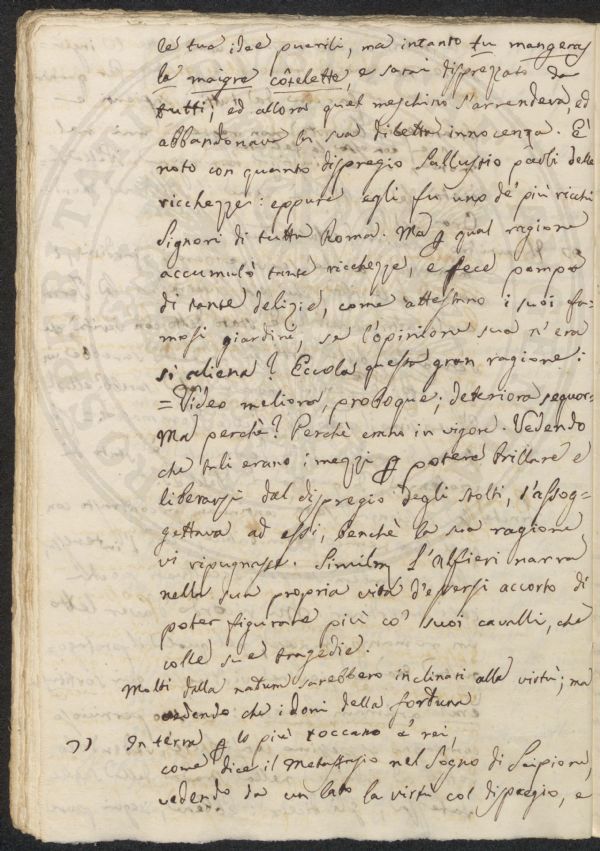 le tue idee puerili, ma intanto tu mangeras
le maigre côtelette, e sarai disprezzato da
tutti; ed allora quel meschino s'arrendeva, ed
abbandonava la sua diletta innocenza. È
noto con quanto dispregio Sallustio parli delle
ricchezze: eppure egli fù uno de' più ricchi
Signori di tutta Roma. Ma p qual ragione
accumulò tante ricchezze, e fece pompa
di tante delizie, come attestano i suoi fa-
mosi giardini, se l'opinione sua n'era
sì aliena? Eccola questa gran ragione:
= Video meliora, proboque; deteriora sequor=
Ma perchè? Perchè erano in vigore. Vedendo
che tali erano i mezzi p potere brillare e
liberarsi dal dispregio degli stolti, s'assog-
gettava ad essi, benchè la sua ragione
vi ripugnasse. Similm l'Alfieri narra
nella sua propria vita d'essersi accorto di
poter figurare più co' suoi cavalli, che
colle sue tragedie.
Molti dalla natura sarebbero inclinati alla virtù; ma
vedendo che i doni della fortuna
" In terra p lo più toccano a' rei,
come dice il Metastasio nel Sogno di Scipione,
vedendo da un lato la virtù col dispregio, e